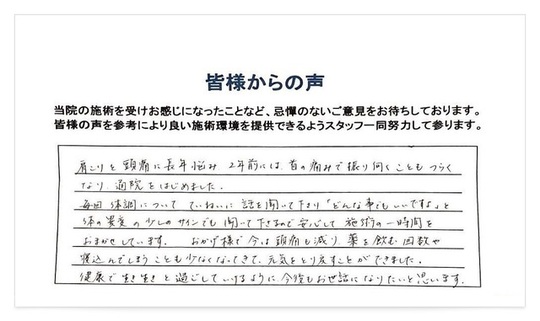 皆様からの声
当院の施術を受けお感じになったことなど、忌憚のないご意見をお待ちしております。
皆様の声を参考により良い施術環境を提供できるようスタッフ一同努力して参ります。
肩こりと頭痛に長年悩み 2年前には、首の痛みで振り向くこともつらく
なり、通院をはじめました。
毎回体調について ていねいに 話を聞いて下さり「どんな事でもいいですよ」と
体の異変の少しのサインでも聞いて下さるので安心して 施術の一時間を
おまかせしています。 おかげ様で今は頭痛も減り 薬を飲む回数や
寝込んでしまうことも少なくなってきて、元気をとり戻すことができました。
健康で生き生きと過ごしていけるように今後もお世話になりたいと思います。